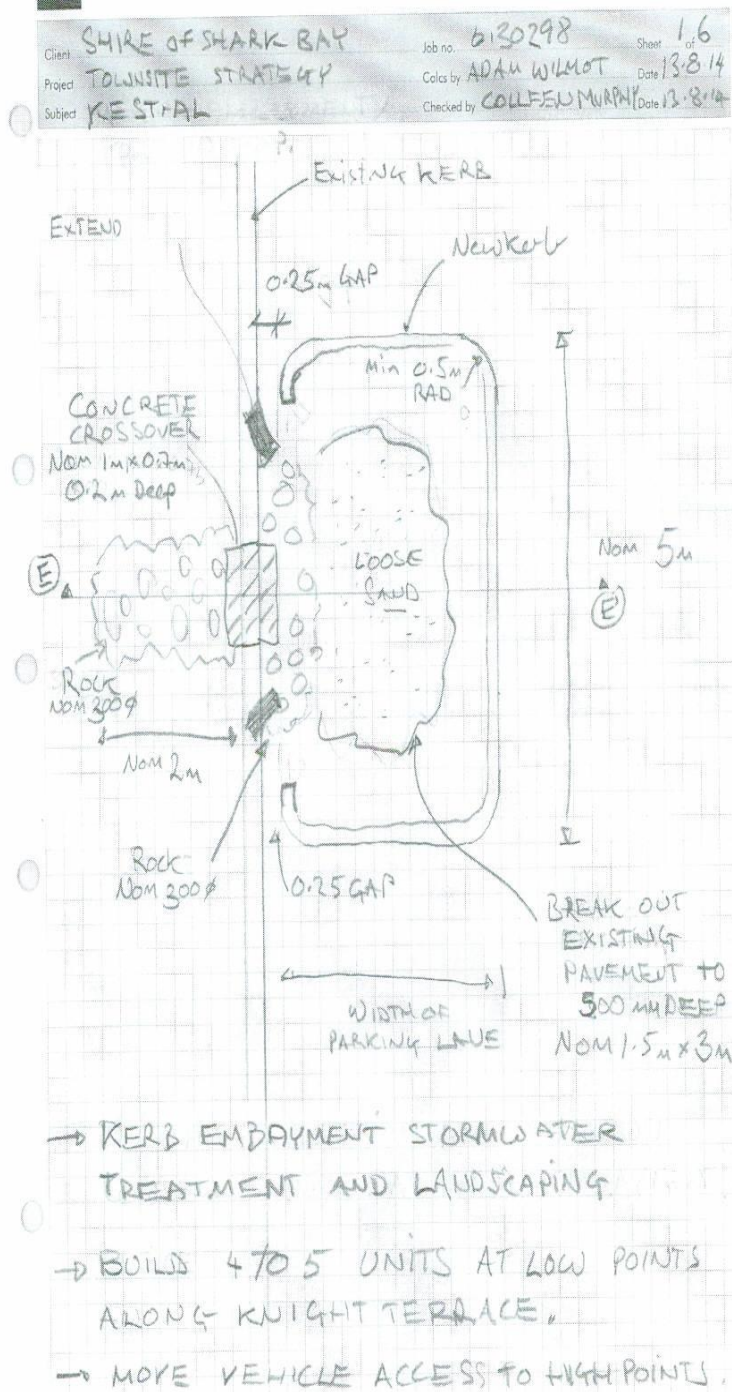 Client SHIRE of SHARK BAY
Job no. 6130298
Sheet 1 of 6
Project TOWNSITE STRATEGY
Calcs by ADAM WILMOT
Date 13.8.14
Subject KESTRAL
Checked by COLLEEN MURPHY
Date 13.8.14
Existing KERB
EXTEND
New Kerb
0.25m GAP
Min 0.5m
RAD
CONCRETE
CROSSOVER
Nom 1m x 0.7m
0.2m Deep
LOOSE
SAND
Nom 5m
E
E'
ROCK
NOM 300ϕ
Nom 2m
Rock
Nom 300ϕ
0.25 GAP
BREAK OUT
EXISTING
PAVEMENT TO
500 mm DEEP
NOM 1.5m x 3m
WIDTH OF
PARKING LANE
→ KERB EMBAYMENT STORMWATER
TREATMENT AND LANDSCAPING
→ BUILD 4 TO 5 UNITS AT LOW POINTS
ALONG KNIGHT TERRACE.
→ MOVE VEHICLE ACCESS TO HIGH POINTS.